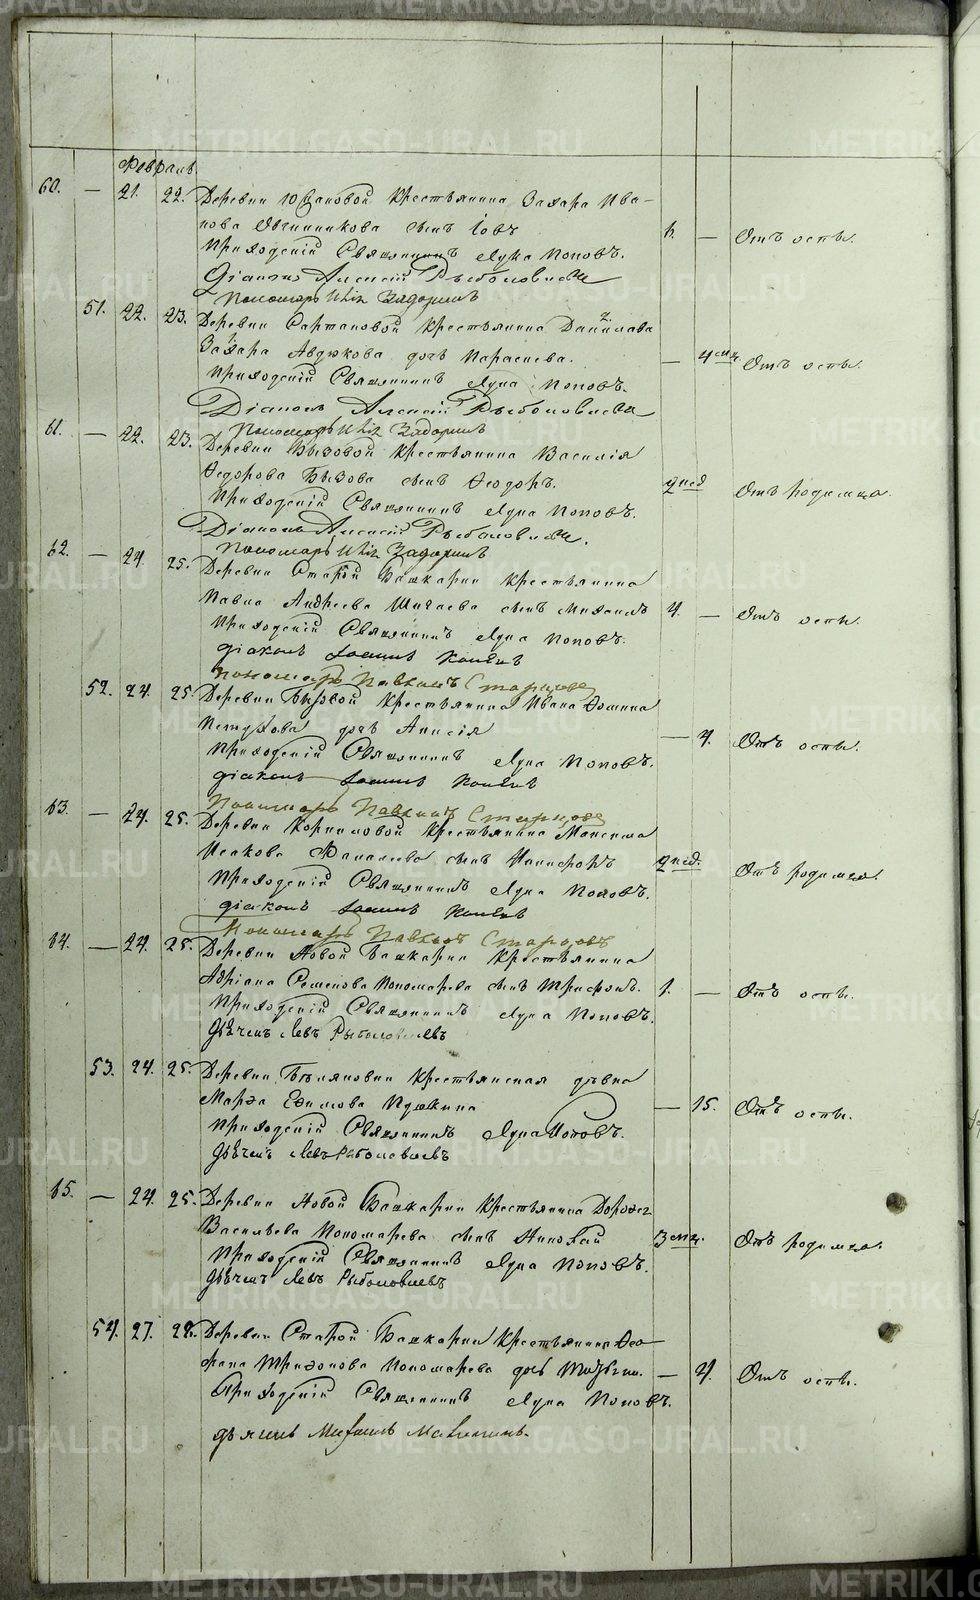 Февраль
60. — 21. 22. Деревни Юдановой Крестьянина Захара Ива-
нова Овчинникова сынъ Іовъ 6. — Отъ оспы.
Приходскій Священникъ Лука Поповъ.
Діаконъ Алексій Рыболовлевъ
Пономарь Задоринъ
51. 22. 23. Деревни Сартановой Крестьянина Данилава
Захара Авдюкова дочь Параскева. — 4 Отъ оспы.
Приходскій Священникъ Лука Поповъ.
Діаконъ Алексій Рыболовлевъ
Пономарь Задоринъ
61. — 22. 23. Деревни Бызовой Крестьянина Василія
Федорова Бызова сынъ Феодоръ. нед Отъ родимца.
Приходскій Священникъ Лука Поповъ.
Діаконъ Алексій Рыболовлевъ.
Пономарь Задоринъ
62. — 24. 25. Деревни Старой Башкарки Крестьянина
Павла Андреева Шигаева сынъ Михаилъ 4 — Отъ оспы.
Приходскій Священникъ Лука Поповъ.
діаконъ Іоаннъ
пономарь Старцовъ
52. 24. 25. Деревни Бызовой Крестьянина Ивана Фомина
Петухова дочь Анисія — 4. Отъ оспы.
Приходскій Священникъ Лука Поповъ.
діаконъ Іоаннъ
Пономарь Старцовъ
63. — 24. 25. Деревни Корниловой Крестьянина Максима
Исакова сынъ Никифоръ нед. Отъ родимца.
Приходскій Священникъ Лука Поповъ.
діаконъ Іоаннъ
Пономарь Старцовъ
64. — 24. 25. Деревни Новой Башкарки Крестьянина
Адріана Семенова Пономарева сынъ Трифонъ. 1. — Отъ оспы.
Приходскій Священникъ Лука Поповъ.
Дьячекъ Левъ Рыболовлевъ
53. 24. 25. Деревни Беляковки Крестьянская дѣвка
Марѳа Ефимова Пушкина — 15. Отъ оспы.
Приходскій Священникъ Лука Поповъ.
Дьячекъ Левъ Рыболовлевъ
65. — 24. 25. Деревни Новой Башкарки Крестьянина Дорофея
Васильева Пономарева сынъ Николай 3 Отъ родимца.
Приходскій Священникъ Лука Поповъ.
Дьячекъ Левъ Рыболовлевъ
54. 27. 28. Деревни Старой Башкарки Крестьянина Фео-
фана Трифонова Пономарева дочь — 4. Отъ оспы.
Приходскій Священникъ Лука Поповъ.
METRIKI.GASO-URAL.RU